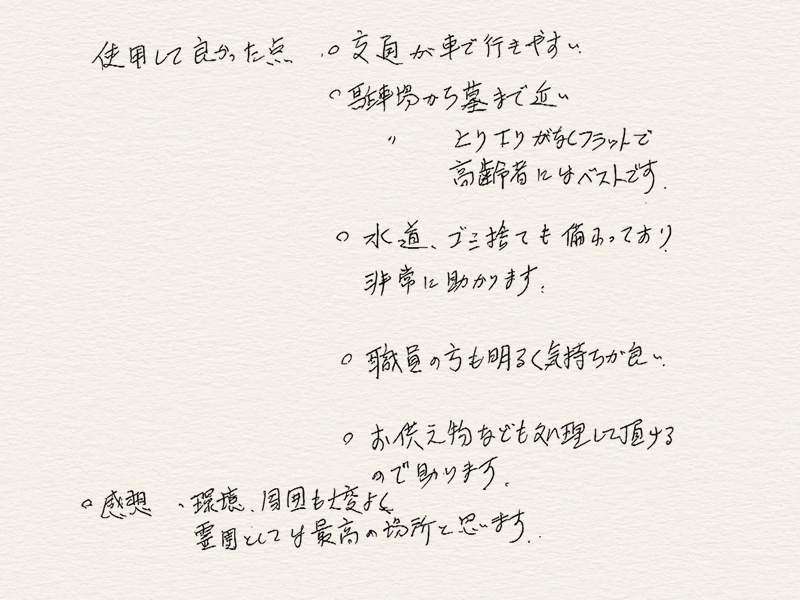 使用して良かった点 ・○ 交通が車で行きやすい
○駐車場から墓まで近い
〃 とりエリがなくフラットで
高齢者にはベストです.
○ 水道、ゴミ捨ても備わっており
非常に助かります.
○ 職員の方も明るく気持ちが良い.
○ お供え物なども処理して頂ける
ので助ります.
○感想 ・環境、周囲も大変よく
霊園としては最高の場所と思います..